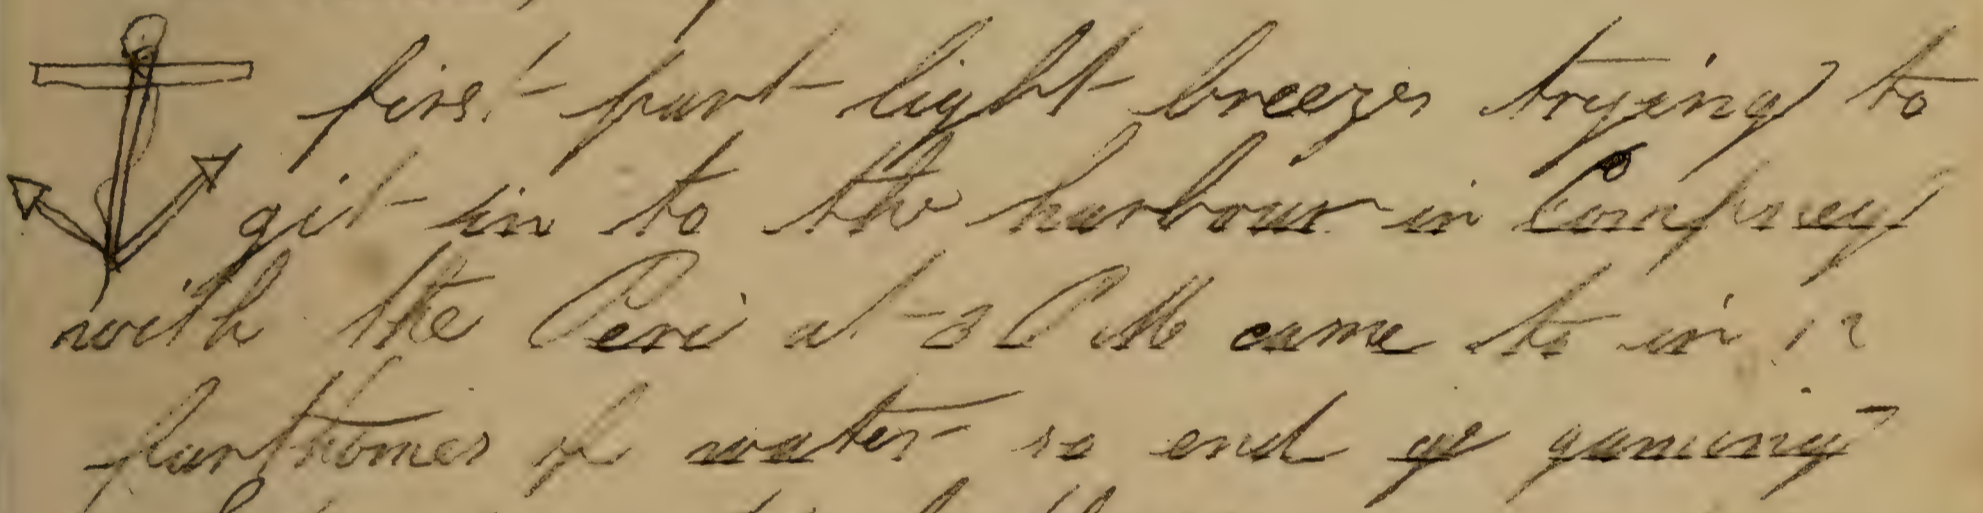 first part light breezes trying to
git in to the harbour in Compney
with the Peri at 3 PM came to in 12
farthomes of water so end